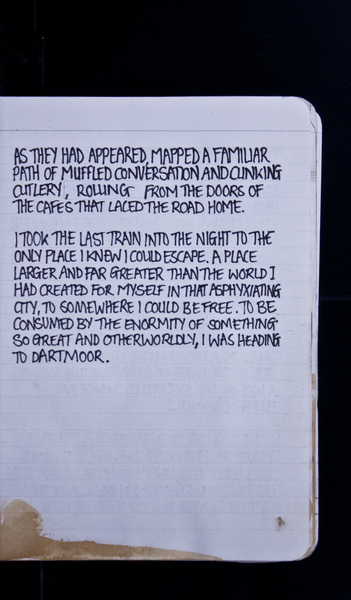 AS THEY HAD APPEARED, MAPPED A FAMILIAR
PATH OF MUFFLED CONVERSATION AND CLINKING
CUTLERY, ROLLING FROM THE DOORS OF
THE CAFES THAT LACED THE ROAD HOME.
I TOOK THE LAST TRAIN INTO THE NIGHT TO THE
ONLY PLACE I KNEW I COULD ESCAPE. A PLACE
LARGER AND FAR GREATER THAN THE WORLD I
HAD CREATED FOR MYSELF IN THAT ASPHYXIATING
CITY, TO SOMEWHERE I COULD BE FREE. TO BE
CONSUMED BY THE ENORMITY OF SOMETHING
SO GREAT AND OTHERWORLDLY, I WAS HEADING
TO DARTMOOR.